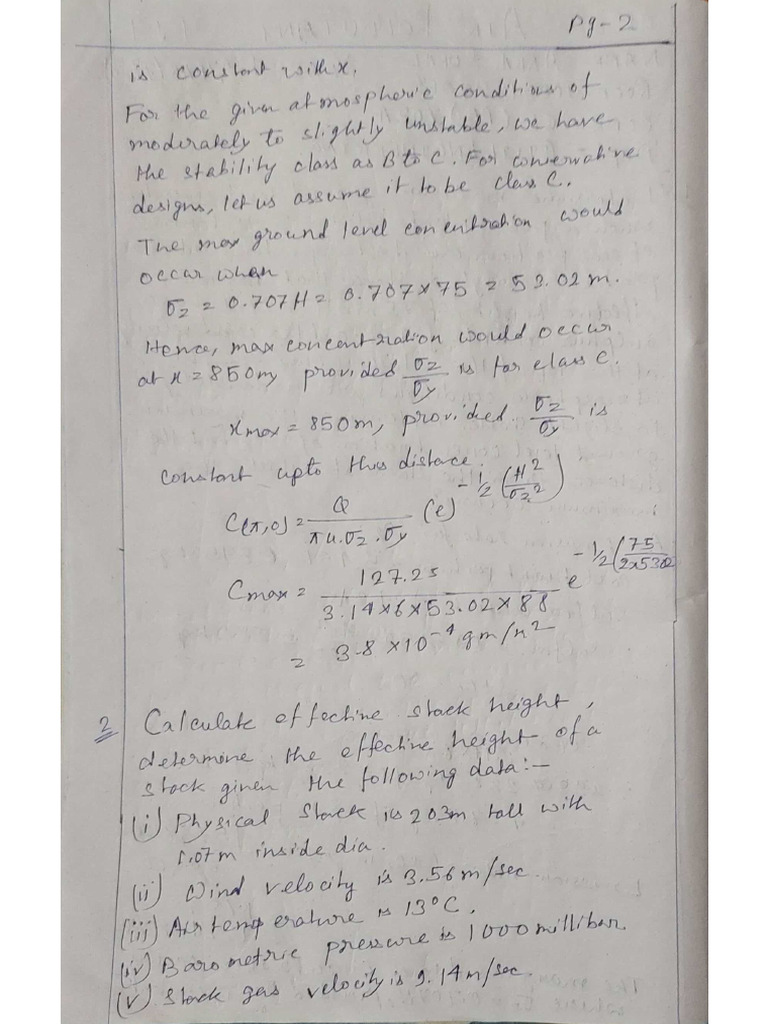 Pg-2
is constant with x.
For the given atmospheric conditions of
moderately to slightly unstable, we have
the stability class as B to C. For conservative
designs, let us assume it to be class C.
The max ground level concentration would
occur when
σz = 0.707H = 0.707×75 = 53.02 m.
Hence, max concentration would occur
at x = 850m, provided σz/σy is for class C.
xmax = 850m, provided σz/σy is
constant upto this distance.
C(x,0) = Q/(πu.σz.σy) (e)^-1/2 (H²/σz²)
Cmax = 127.25/(3.14×6×53.02×88) e^-1/2 (75/2×5302
= 3.8 × 10⁻⁴ gm/m²
2 Calculate effective stack height,
determine the effective height of a
stack given the following data:-
(i) Physical stack is 203m tall with
1.07m inside dia.
(ii) Wind velocity is 3.56 m/sec.
(iii) Air temperature is 13°C.
(iv) Barometric pressure is 1000 millibar.
(v) Stack gas velocity is 9.14m/sec.